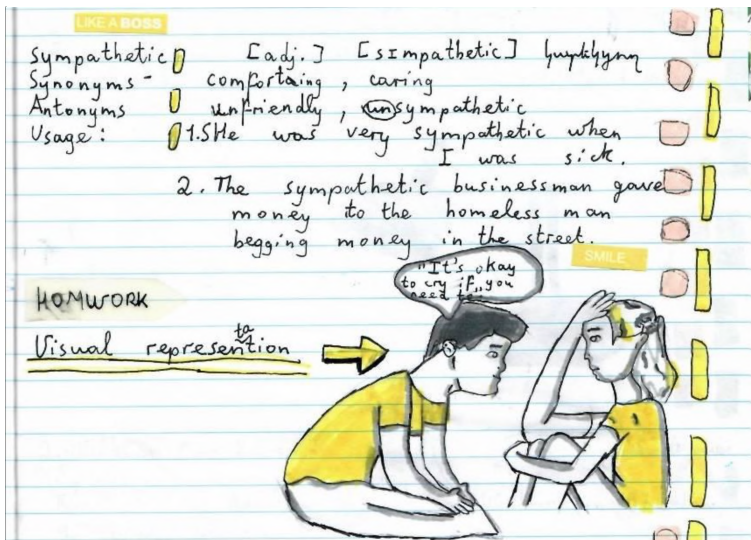 LIKE A BOSS
Sympathetic [adj.] [sImpathetic]
Synonyms - comfortaing, caring
Antonyms unfriendly, unsympathetic
Usage: 1. SHe was very sympathetic when
I was sick.
2. The sympathetic businessman gave
money to the homeless man
begging money in the street.
SMILE
"It's okay
to cry if you
need to"
HOMWORK
Visual representation